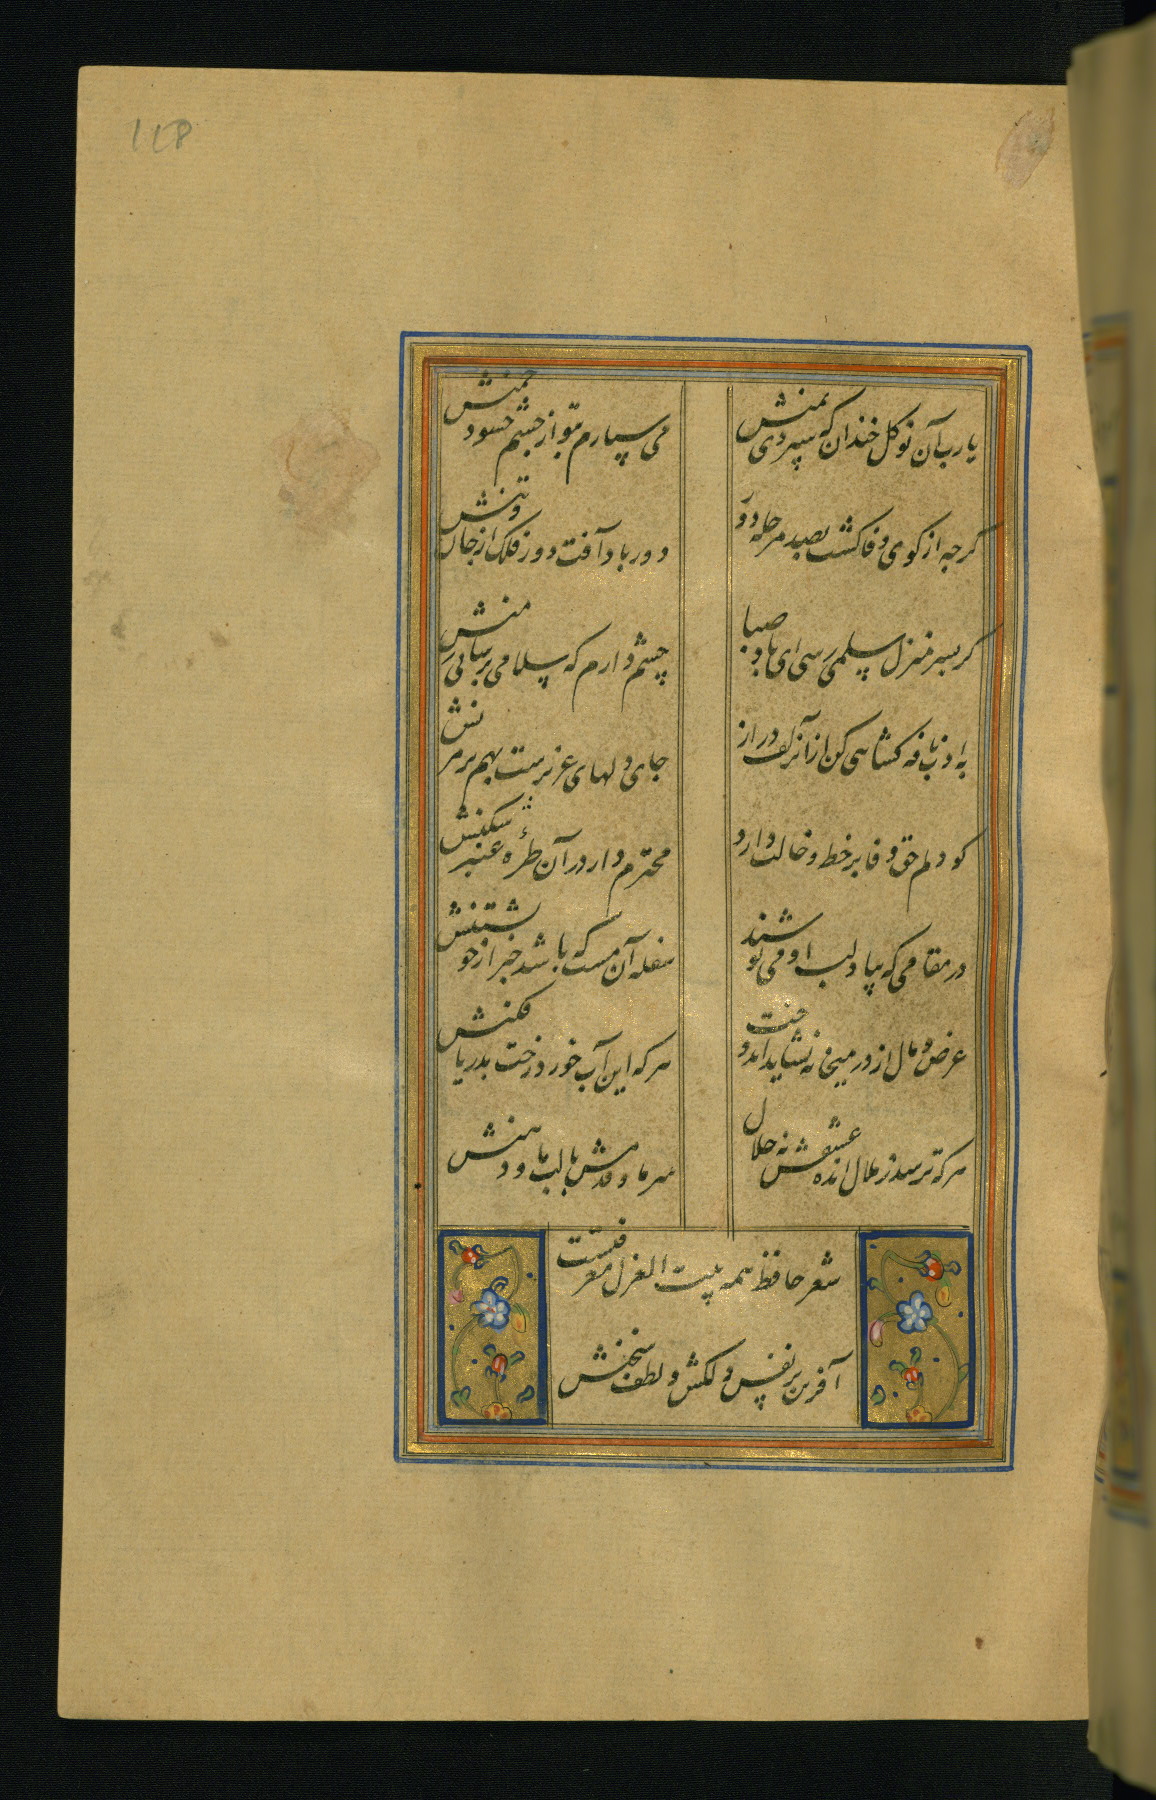 118
یارب آن نوکل خندان که سپردی بمنش
می سپارم بتو از چشم حسود چمنش
کرچه از کوی وفا کشت بصد مرحله دور
دور باد آفت دور فلک از جان و تنش
کر بسر منزل سلمی رسی ای باد صبا
چشم دارم که سلامی برسانی ز منش
بادب نافه کشایی کن از آن زلف دراز
جای دلهای عزیزست بهم بر مزنش
کو دلم حق وفا بر خط و خالت دارد
محترم دار در آن طرّهٔ عنبر شکنش
در مقامی که بیاد لب او می نوشند
سفله آن مست که باشد خبر از خویشتنش
عرض و مال از در میخانه نشاید اندوخت
هرکه این آب خورد رخت بدریا فکنش
هرکه ترسد ز ملال انده عشقش نه حلال
سر ما و قدمش یا لب ما و دهنش
شعر حافظ همه بیت الغزل معرفتست
آفرین بر نفس دلکش و لطف سخنش